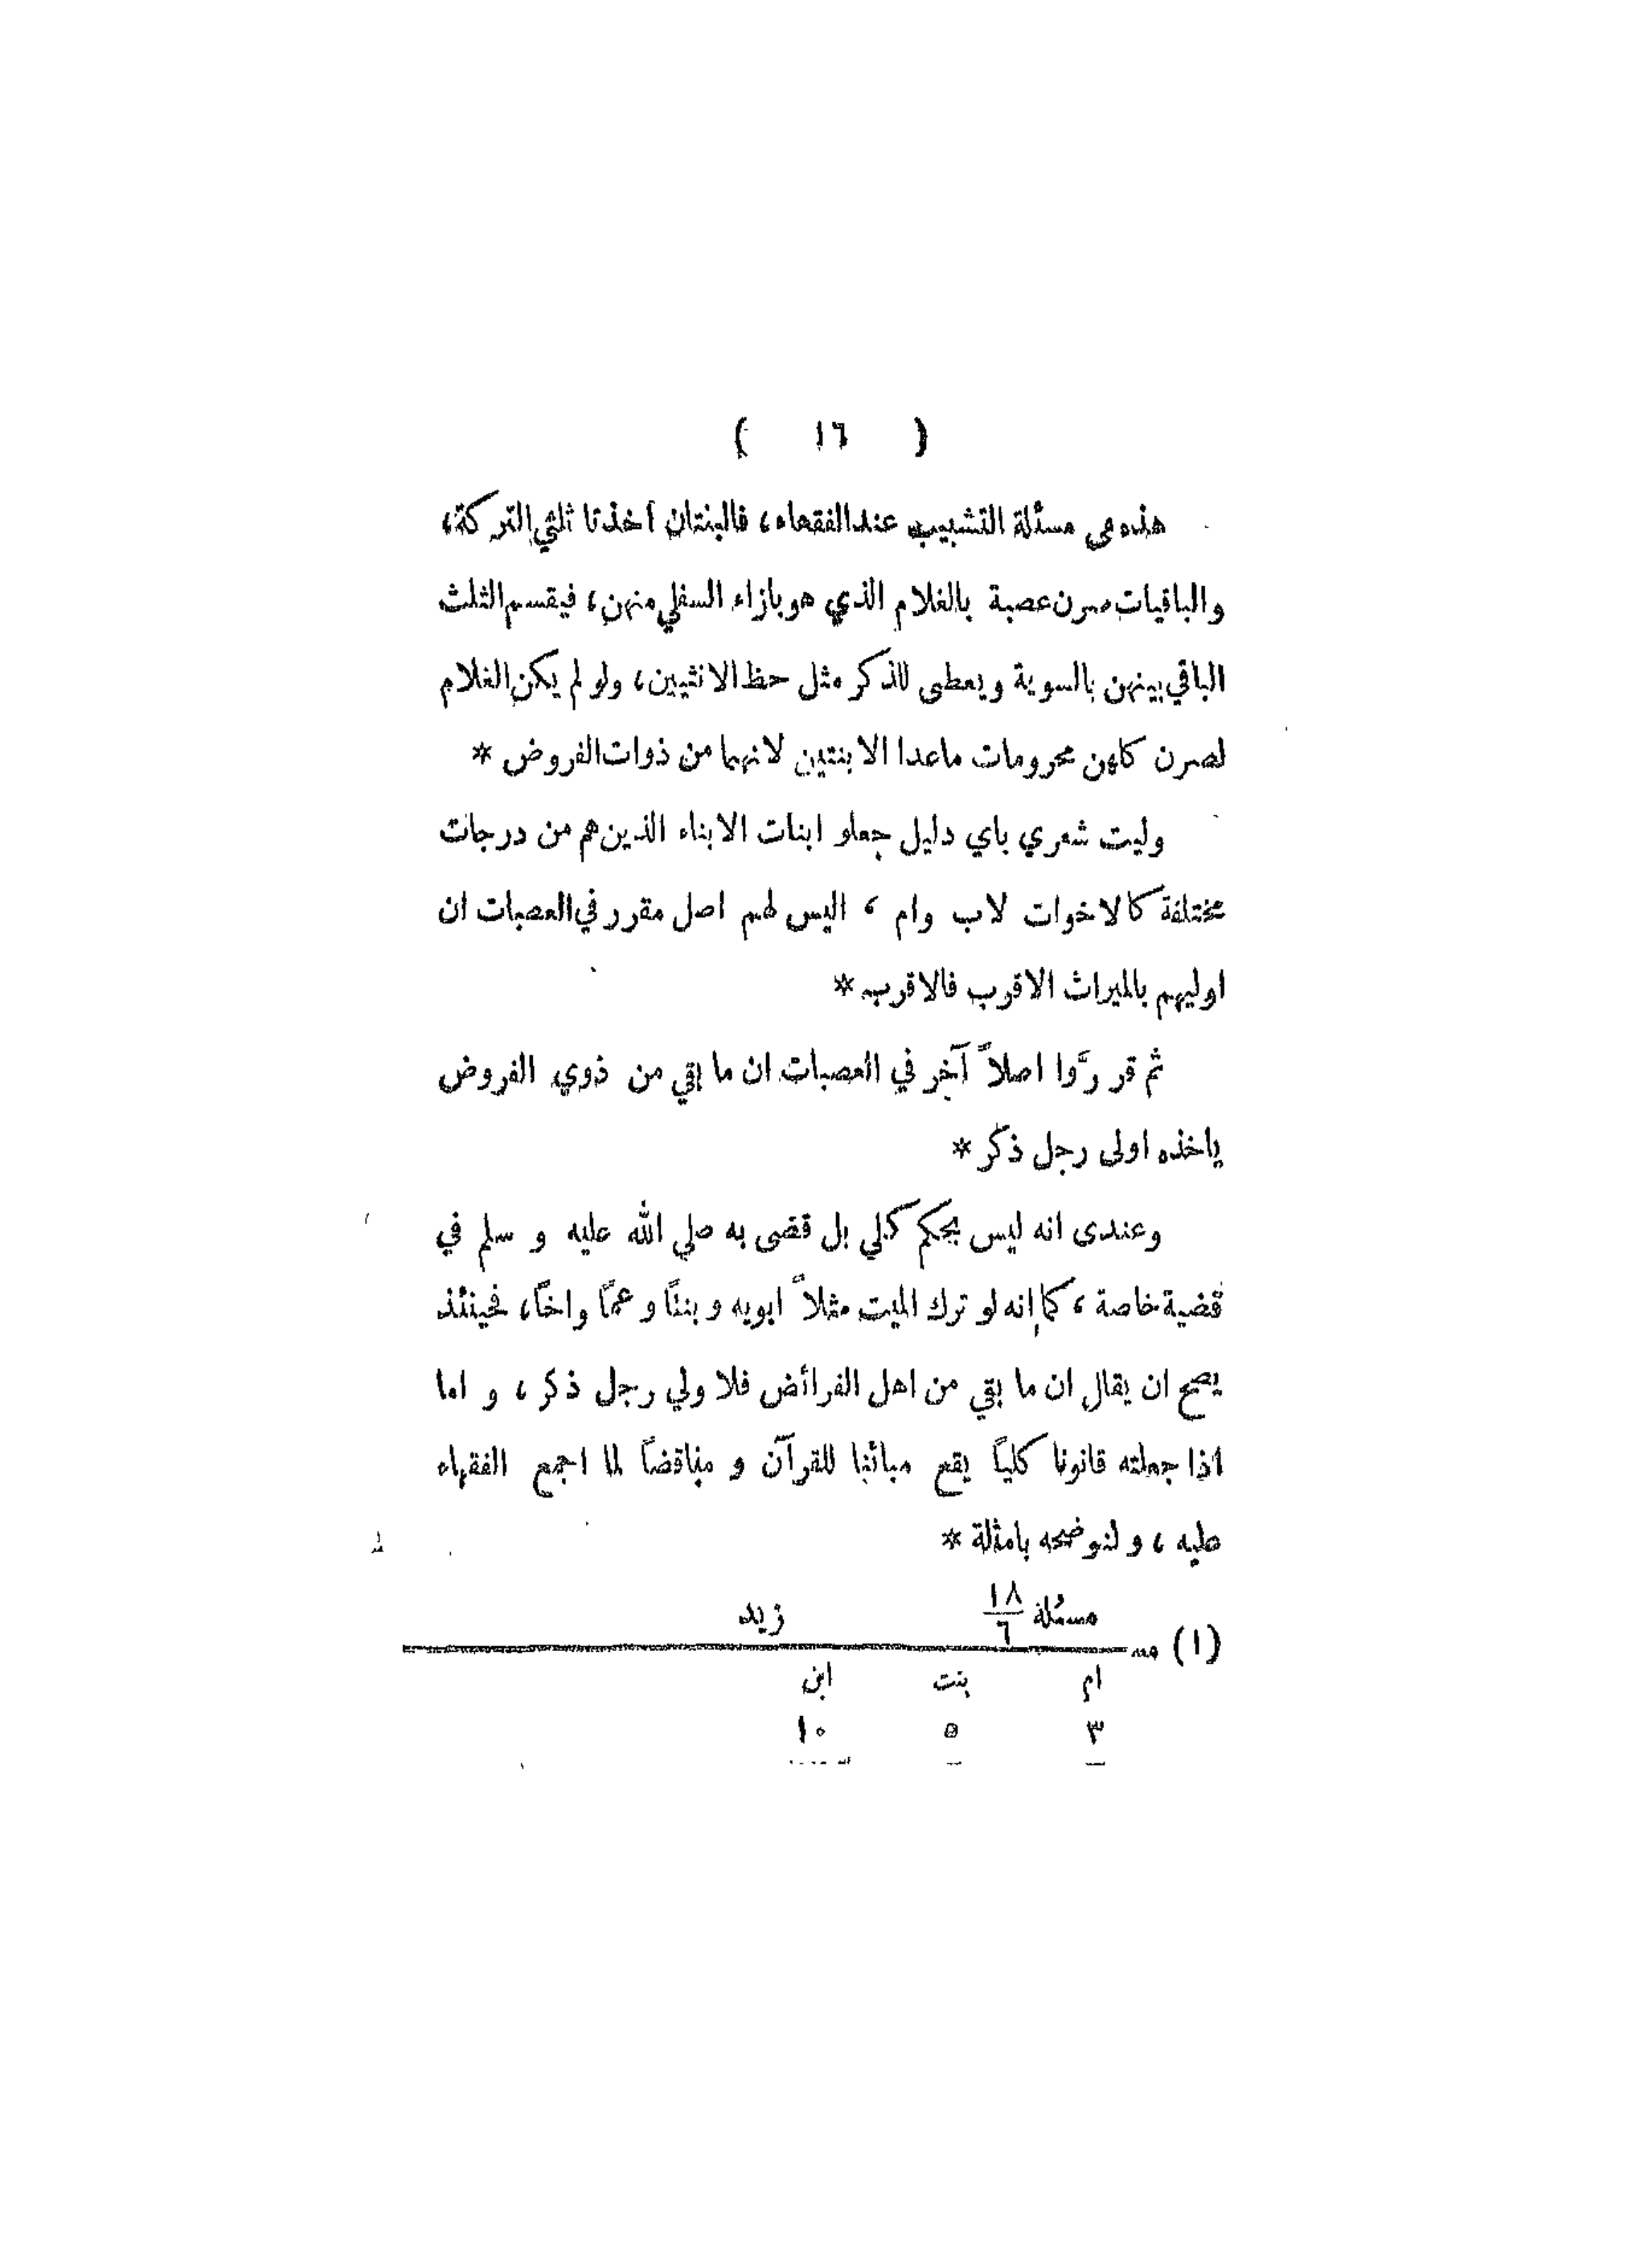 ( ١٦ )
هذه هى مسئلة التشبيب عند الفقهاء، فالبنتان اخذتا ثلثي التركة،
والباقيات صرن عصبة بالغلام الذي هو بازاء السفلي منهن، فيقسم الثلث
الباقي بينهن بالسوية ويعطى للذكر مثل حظ الانثيين، ولو لم يكن الغلام
لصرن كلهن محرومات ماعدا الابنتين لانهما من ذوات الفروض *
وليت شعري باي دليل جعلو ابنات الابناء الذين هم من درجات
مختلفة كالاخوات لاب وام، اليس لهم اصل مقرر في العصبات ان
اوليهم بالميراث الاقرب فالاقرب *
ثم قررَّوا اصلاً آخر في العصبات ان ما بقي من ذوي الفروض
ياخذه اولى رجل ذكر *
وعندى انه ليس بحكم كلي بل قضى به صلي الله عليه و سلم في
قضية خاصة، كما انه لو ترك الميت مثلاً ابويه و بنتًا و عمًا واخًا، فحينئذ
يصح ان يقال ان ما بقي من اهل الفرائض فلا ولي رجل ذكر، و اما
اذا جعلته قانونا كلياً يقع مبائنا للقرآن و مناقضاً لما اجمع الفقهاء
عليه، و لنوضحه بامثلة *
مسئلة ١٨/٦ زيد
(١) مـ
ام بنت ابن
٣ ٥ ١٠